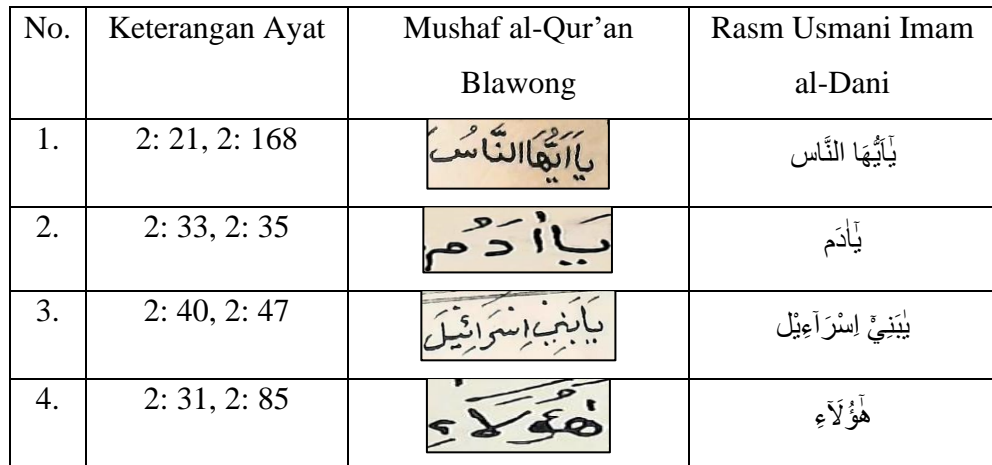 No. Keterangan Ayat Mushaf al-Qur’an Blawong Rasm Usmani Imam al-Dani
1. 2: 21, 2: 168 يَااَيُّهَاالنَّاسُ يٰٓاَيُّهَا النَّاس
2. 2: 33, 2: 35 يَاأٰدَمُ يٰٓاٰدَم
3. 2: 40, 2: 47 يَابَنِيْ اِسْرَائِيْلَ يٰبَنِيْٓ اِسْرَآءِيْل
4. 2: 31, 2: 85 هٰؤُلَاءِ هٰٓؤُلَآءِ